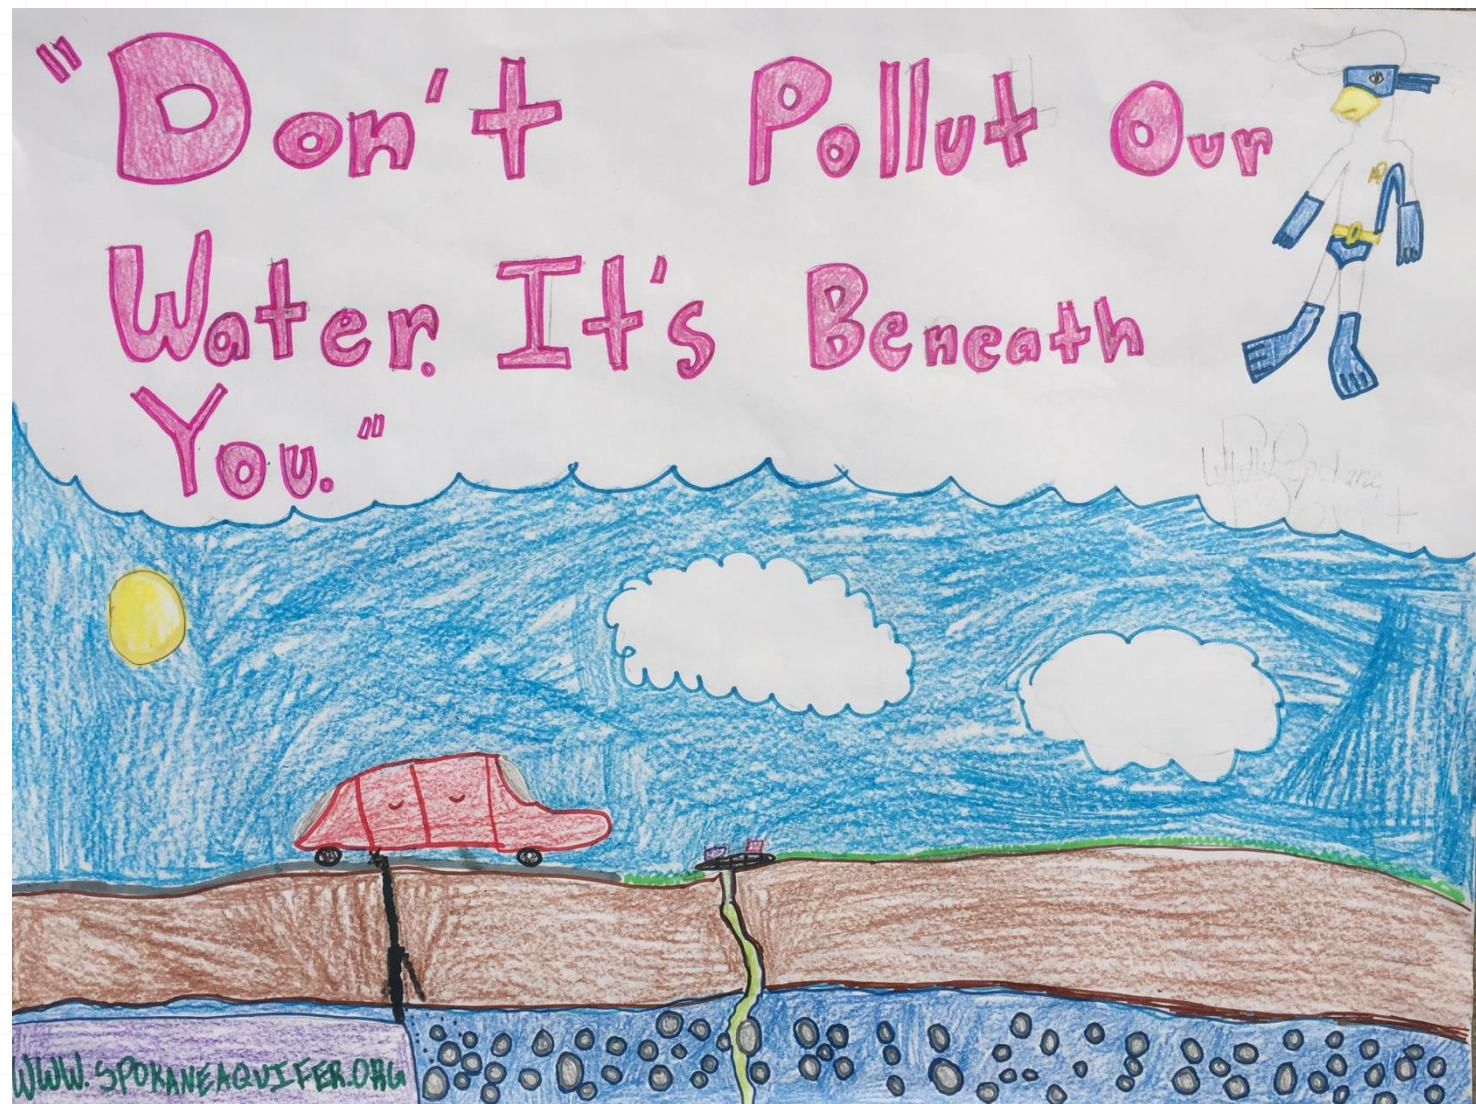 "Don't Pollut Our
Water. It's Beneath
You."
WWW.SPOKANEAQUIFER.ORG